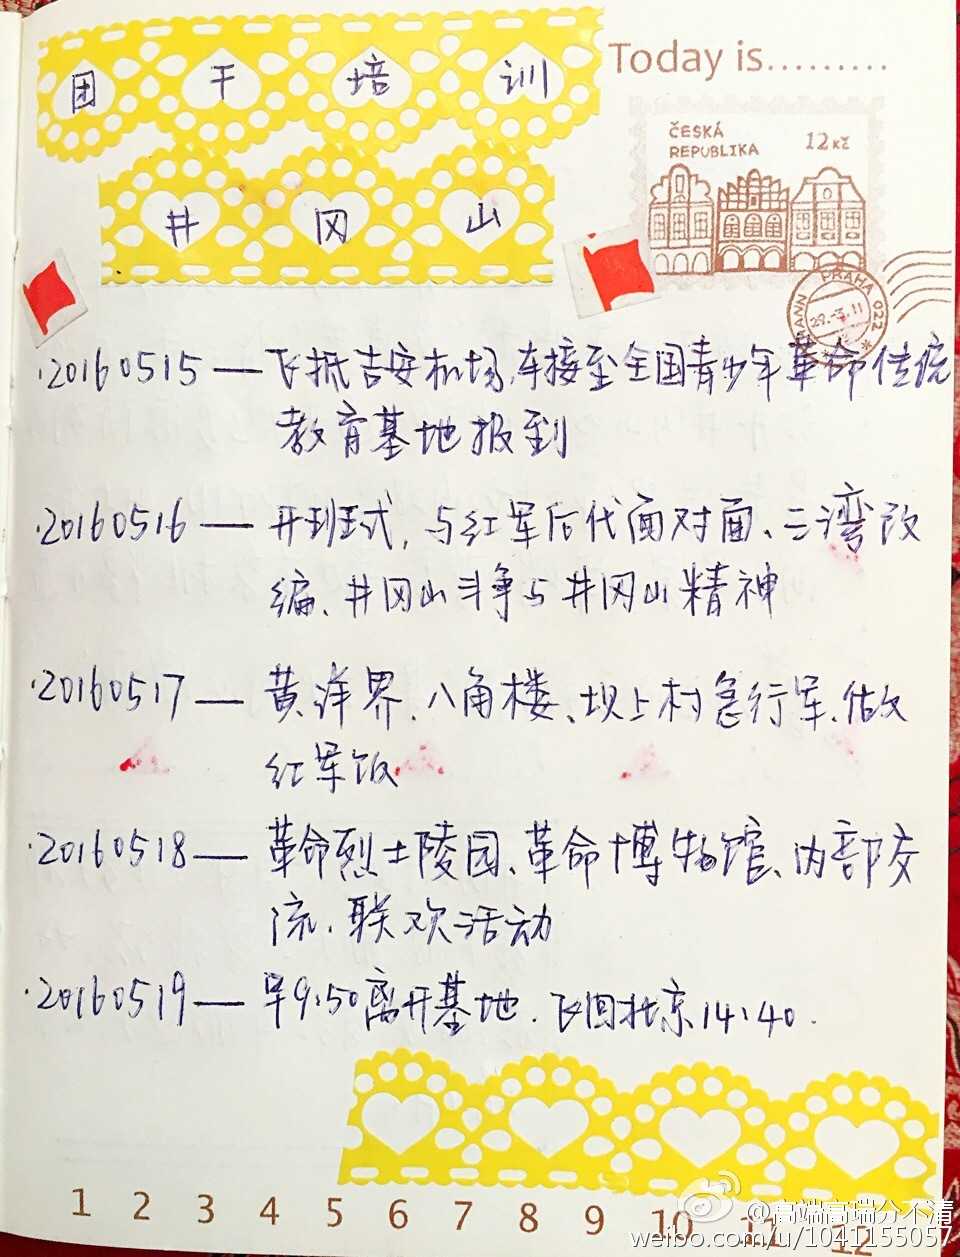 团干培训
井冈山
Today is.........
ČESKÁ
REPUBLIKA
12 Kč
PRAHA 022
29.-3.11
·20160515—飞抵吉安机场、车接至全国青少年革命传统
教育基地报到
·20160516—开班式,与红军后代面对面、三湾改
编、井冈山斗争与井冈山精神
·20160517—黄洋界、八角楼、坝上村急行军、做
红军饭
·20160518—革命烈士陵园、革命博物馆、内部交
流、联欢活动
·20160519—早9:50离开基地、飞回北京14:40.
1 2 3 4 5 6 7 8 9 10 11 12
@高端高端分不清
weibo.com/u/1041155057